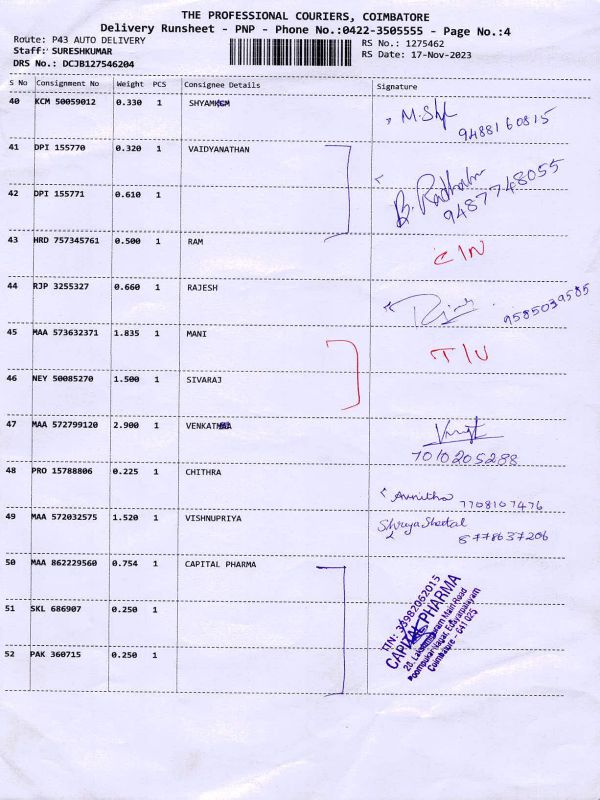 THE PROFESSIONAL COURIERS, COIMBATORE
Delivery Runsheet - PNP - Phone No.:0422-3505555 - Page No.:4
Route: P43 AUTO DELIVERY
RS No.: 1275462
Staff: SURESHKUMAR
RS Date: 17-Nov-2023
DRS No.: DCJB127546204
S No Consignment No Weight PCS Consignee Details Signature
40 KCM 50059012 0.330 1 SHYAM
9488160815
41 DPI 155770 0.320 1 VAIDYANATHAN
42 DPI 155771 0.610 1
9487748055
43 HRD 757345761 0.500 1 RAM
44 RJP 3255327 0.660 1 RAJESH
9585039585
45 MAA 573632371 1.835 1 MANI
46 NEY 50085270 1.500 1 SIVARAJ
47 MAA 572799120 2.900 1 VENKAT
7010205288
48 PRO 15788806 0.225 1 CHITHRA
Avnitha 7708107476
49 MAA 572032575 1.520 1 VISHNUPRIYA
8778637206
50 MAA 862229560 0.754 1 CAPITAL PHARMA
51 SKL 686907 0.250 1
52 PAK 360715 0.250 1
CAPITAL PHARMA
Coimbatore - 641 025